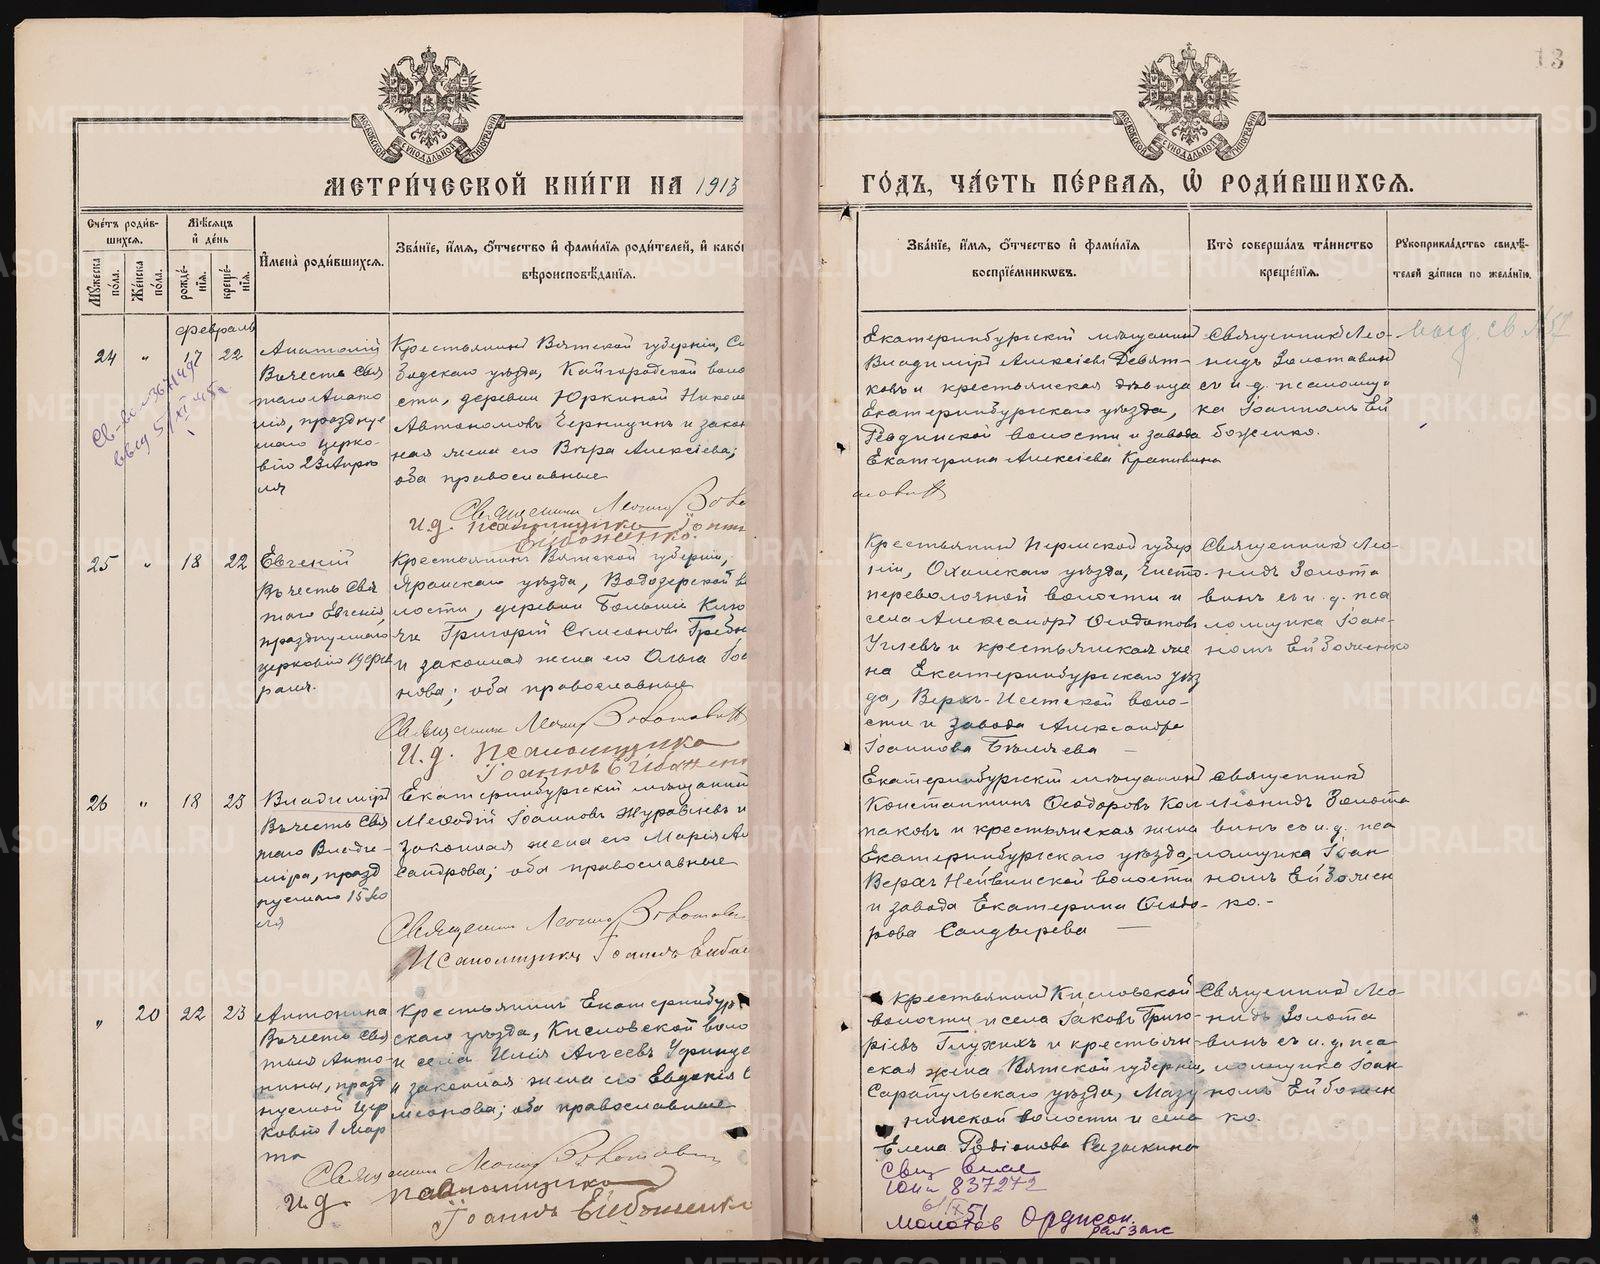 13
МОСКОВСКОЙ СѴНОДАЛЬНОЙ ТИПОГРАФІИ
МОСКОВСКОЙ СѴНОДАЛЬНОЙ ТИПОГРАФІИ
МЕТРИ́ЧЕСКОЙ КНИ́ГИ НА 1913
ГО́ДЪ, ЧА́СТЬ ПЕ́РВАЯ, Ѡ҆ РОДИ́ВШИХСЯ.
Сче́тъ роди́вшихся.
Мꙋ́жеска по́ла.
Же́нска по́ла.
Мѣ́сяцъ и҆ де́нь
рожде́нїя.
креще́нїя.
И҆мена̀ роди́вшихся.
Зва́нїе, и҆́мя, ѻ҆́тчество и҆ фами́лїя роди́телей, и҆ како́г
вѣроисповѣ́данїя.
Зва́нїе, и҆́мя, ѻ҆́тчество и҆ фами́лїя
воспрїе́мникѡвъ.
Кто̀ соверша́лъ та́инство
креще́нїя.
Рꙋкоприкла́дство свидѣ́-
телей за́писи по жела́нїю.
февраль
24 " 17 22
Анатолій
Въ честь Свя
таго Анато
лія, празднуе
маго церко-
вію 23 Апрѣ
ля
Крестьянинъ Вятской губерніи, Сло
бодскаго уѣзда, Кайгородской воло
сти, деревни Юркиной Никола
Автономовъ Черницынъ и закон
ная жена его Вѣра Алексіева;
оба православные
Священникъ Леонидъ Золо
И.д. псаломщика Іоанн
Ейбоженко.
Екатеринбургскій мѣщанинъ
Владиміръ Алексіевъ Девят-
ковъ и крестьянская дѣвица
Екатеринбургскаго уѣзда,
волости и завода
Екатерина Алексіева Крапивина
Священникъ Лео-
нидъ Золотавинъ
съ и.д. псаломщи
ка Іоанномъ Ей
боженко.
выд. св. №51
25 " 18 22
Евгеній
Въ честь Свя
таго Евгенія,
празднуемаго
церковію 19 фев
раля.
Крестьянинъ Вятской губерніи,
Яранскаго уѣзда, Водозерской во
лости, деревни Большіе Клю
чи Григорій Симеоновъ Гребн
и законная жена его Ольга Іоа
нова; оба православные
Священникъ Леонидъ Золотавинъ
И.д. Псаломщика
Іоаннъ Ейбожен
Крестьянинъ Пермской губер
ніи, Оханскаго уѣзда, Чисто-
переволочной волости и
села Александръ Ѳеодотовъ
Углевъ и крестьянская же
на Екатеринбургскаго уѣз
да, Верхъ-Исетской воло-
сти и завода Александра
Іоаннова Бѣляева
Священникъ Лео-
нидъ Золота
винъ съ и.д. пса
ломщика Іоан-
номъ Ейбоженко
26 " 18 23
Владиміръ
Въ честь Свя
таго Влади-
міра, празд
нуемаго 15 Ію
ля
Екатеринбургскій мѣщанинъ
Меѳодій Іоанновъ Журавлевъ и
законная жена его Марія Ал
сандрова; оба православные
Священникъ Леонидъ Золотави
Псаломщикъ Іоаннъ Ейбож
Екатеринбургскій мѣщанинъ
Константинъ Ѳеодоровъ Кол
паковъ и крестьянская жена
Екатеринбургскаго уѣзда,
Верхъ Нейвинской волости
и завода Екатерина Ѳеодо-
рова Салдырева
Священникъ
Леонидъ Золота
винъ съ и.д. пса
ломщика Іоан
номъ Ейбожен
ко.-
" 20 22 23
Антонина
Въ честь Свя
тыя Анто-
нины, празд
нуемой цер
ковію 1 Мар
та
Крестьянинъ Екатеринбург
скаго уѣзда, Кисловской воло
и села Илія
и законная жена его Евдокія С
меонова; оба православные
Священникъ Леонидъ Золотавинъ
и.д. псаломщика
Іоаннъ Ейбоженко
крестьянинъ Кисловской
волости и села Іаковъ Григо-
ріевъ Глухихъ и крестьян-
ская жена Вятской губерніи,
Сарапульскаго уѣзда, Мазу
нинской волости и села
Елена Родіонова Разжкина
Священникъ Лео
нидъ Золота
винъ съ и.д. пса
ломщика Іоан
номъ Ейбожен
ко.
837272
6/IX 51
Молотов
райзаг